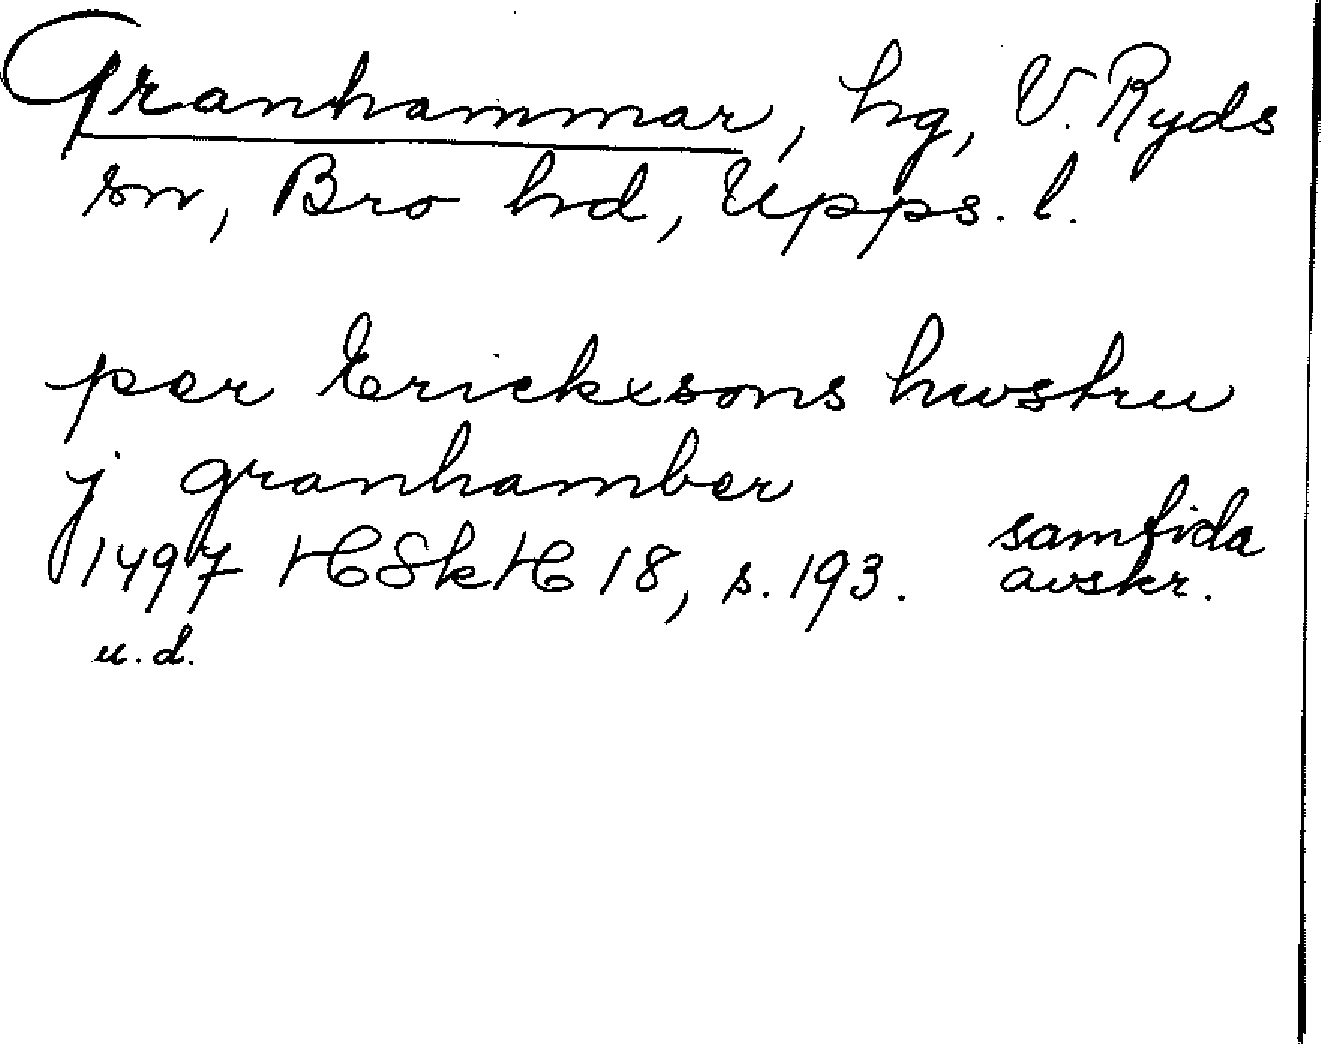 Granhammar, hg, V. Ryds
sn, Bro hd, Upps. l.
per Erickxsons hwstru
j granhamber
1497 HSkH 18, s. 193. samtida
avskr.
u.d.